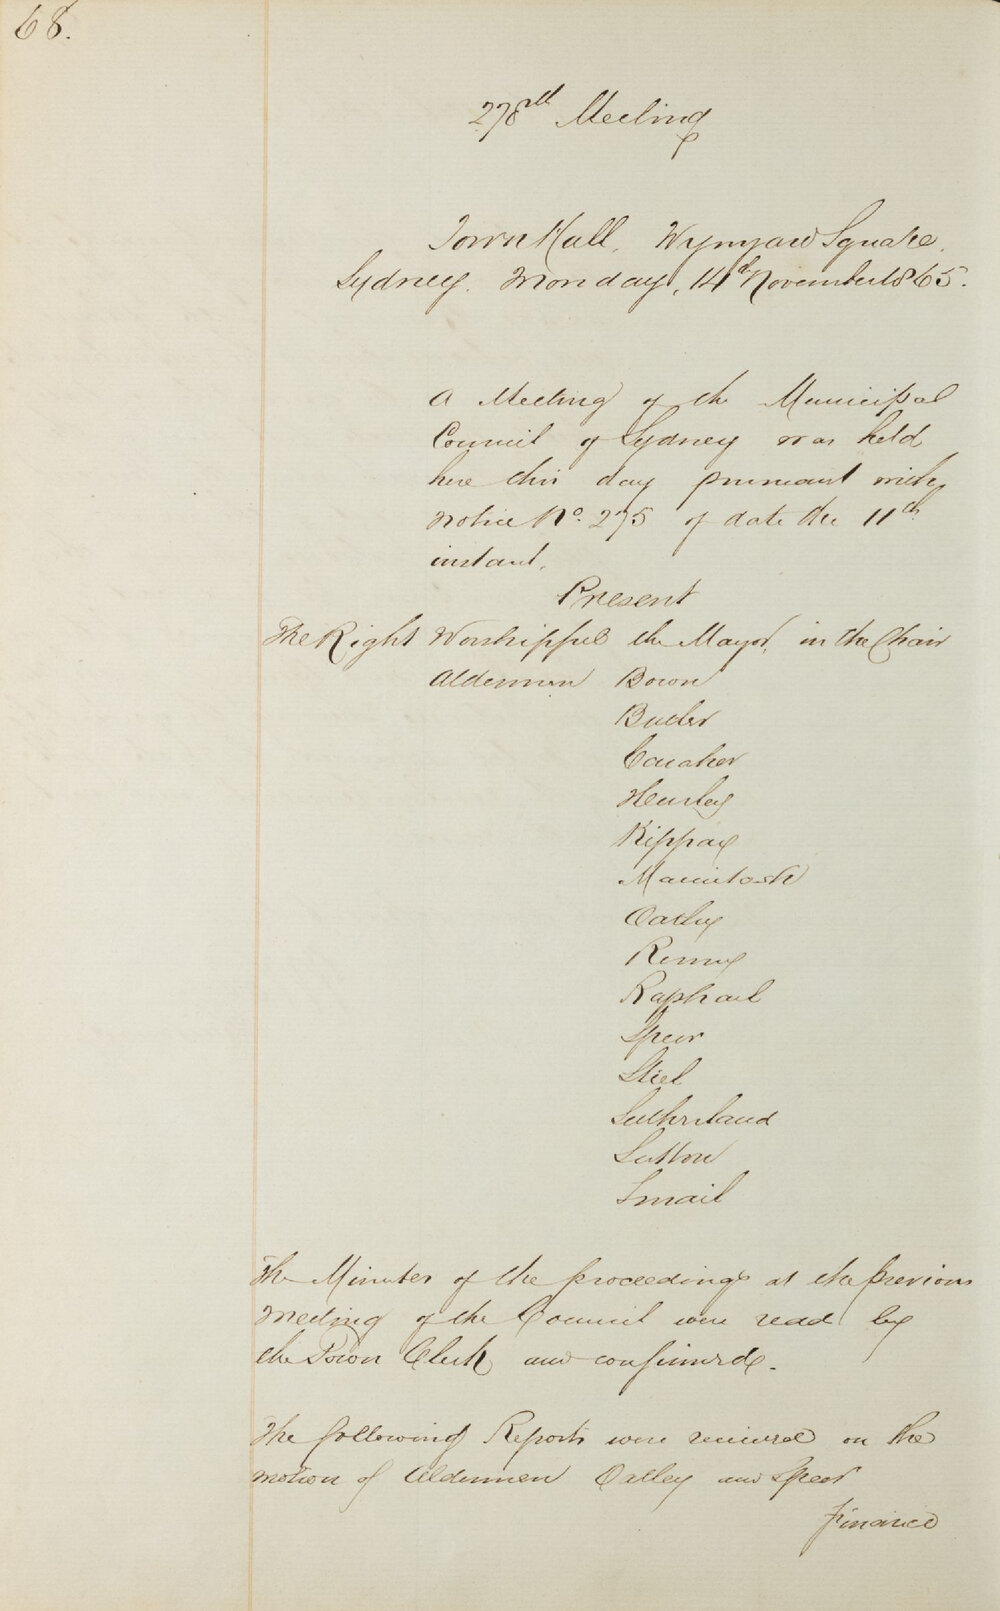 68.
278th Meeting
Town Hall, Wynyard Square,
Sydney. Monday, 14th November 1865.
A Meeting of the Municipal
Council of Sydney was held
here this day pursuant with
notice No. 275 of date the 11th
instant.
Present
The Right Worshipful the Mayor, in the Chair
Aldermen Bown
Butler
Caraher
Hensley
Kippax
Macintosh
Oatley
Renny
Raphael
Speer
Steel
Sutherland
Sutton
Smail
The Minutes of the proceedings at the previous
meeting of the Council were read by
the Town Clerk and confirmed.
The following Reports were received on the
motion of Aldermen Oatley and Speer
Finance